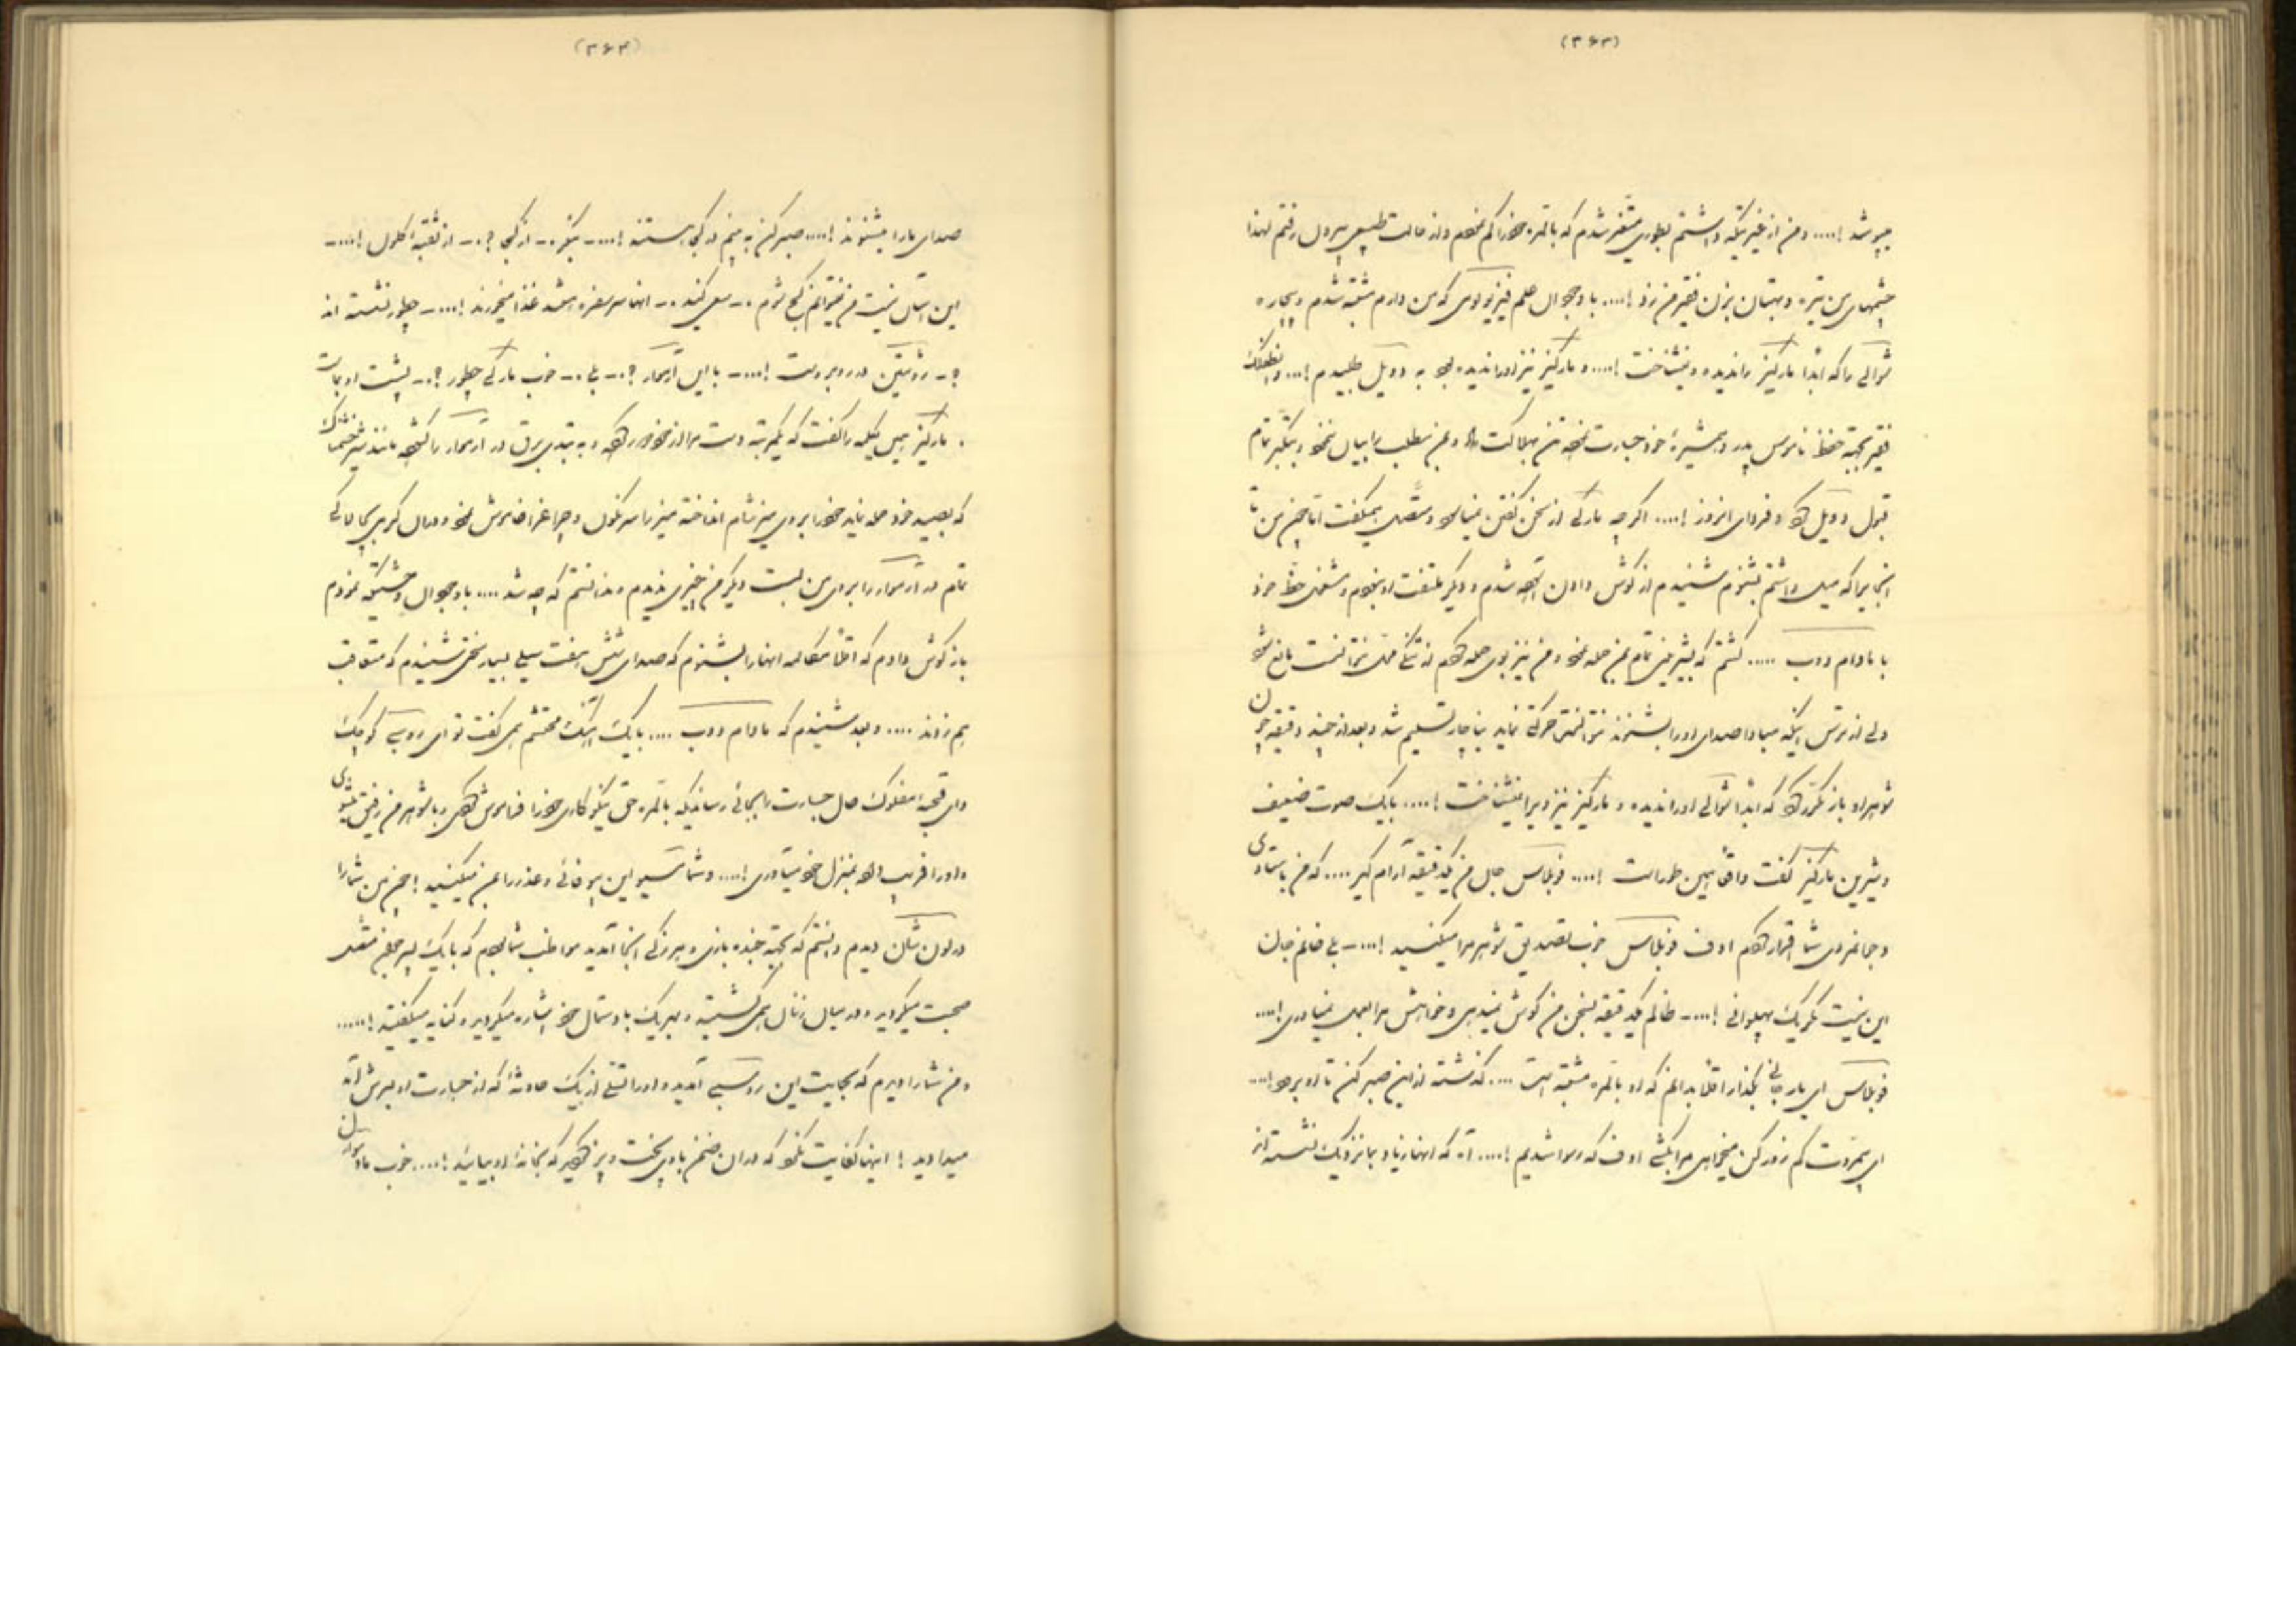 (۳۶۳)
شد !.... و من از غیرتیکه داشتم بطوری متغیر شدم که بالمره خود را گم نموده و از حالت طبیعی بیرون رفتم لهذا
چشمهای من تیره و بهتان بزن فقیر من زد !.... با وجود آن علم که من دارم مشتبه شدم و بیچاره
را که ابداً مارکیز را ندیده و نشناخت !.... و مارکیز نیز او را ندیده بود به دوئل طلبیدم !...
فقیر بجهة حفظ ناموس پدر و همشیرهٔ خود جسارت نموده تن بهلاکت داد و این مطلب را بیان ننمود و تمام
قبول دوئل کرد و فردای آنروز !.... اگر چه مارکی از سخن گفتن و متصل میگفت اما چون من تا
آنجائیرا که میل داشتم بشنوم شنیدم از گوش دادن خسته شدم و دیگر ملتفت او نبودم و مشغول حظ خود
با مادام دوب ..... گشتم که نیز تمام این حمله نمود و من نیز بوی حمله کردم از تنگی نتوانست مانع شود
ولی از ترس اینکه مبادا صدای او را بشنوند نتوانست حرکتی نماید بناچار تسلیم شد و بعد از چند دقیقه چون
شوهر او باز مکرر کرد که ابداً او را ندیده و مارکیز نیز ویرا نمیشناخت !.... با یک صوت ضعیف
و شیرین مارکیز گفت واقعاً همین طور است !.... فوبلاس جان من یکدقیقه آرام گیر .... که من باستادی
و جوانمردی شما اقرار کردم اوف فوبلاس خوب تصدیق شوهر مرا میکنید !.... – بلی خانم جان
این نیست مگر یک پهلوانی !.... – ظالم یکدقیقه بسخن من گوش نمیدهی و خواهش مرا بعمل نمیآوری !....
فوبلاس ای یار جانی بگذار اقلاً بدانم که او بالمره مشتبه است .... گذشته از این صبر کن تا او برود !....
ای بیمروت کم زور کن میخواهی مرا بکشی اوف که رسوا شدیم !.... آه که آنها زیاد بما نزدیک نشسته اند
(۳۶۴)
صدای ما را میشنوند !.... صبر کن به بینم در کجا هستند !.... – بنگر .– از کجا ؟ .– از نقبهٔ کلون !.... –
این آسان نیست من نمیتوانم کج شوم .– سعی کنید .– آنها سر سفره هستند غذا میخورند !.... – چطور نشسته اند
؟ – ژوستین در روبروست !.... – با این آرموار ؟ .– بلی .– خوب مارکی چطور ؟ .– پشت او بماست
. مارکیز همین یکلمه را گفت که یکمرتبه دست مرا از خود دور کرده و به تندی برق در آرموار را گشوده مانند شیر خشمناک
که بصید خود حمله نماید خود را بروی میز شام انداخته میز را سرنگون و چراغ را خاموش نموده و در آن گرمی بچالاکی
تمام در آرموار را بروی من بست دیگر من چیزی ندیدم و ندانستم که چه شد .... با وجود آن نمردم
باز گوش دادم که اقلاً مکالمه آنها را بشنوم که صدای شش هفت سیلی بسیار سختی شنیدم که متعاقب
هم زدند .... و بعد شنیدم که مادام دوب .... با یک آهنگ محتشم همی گفت تو ای روسپی کوچک
وای قحبهٔ مفلوک حال جسارت را بجائی رساندی که بالمره حق نیکو کاری خود را فراموش کرده و با شوهر من رفیق میشوی
و او را فریب داده بمنزل خود میآوری !.... و شما مسیو این بیوفائی و غدر را بمن میکنید ! چون من شما را
در لون شان دیدم دانستم که بجهة جنده بازی و هرزگی آنجا آمدید مواظب شما بودم که با یک پسر جوان متصل
صحبت میکردید و در میان زنان همی گشتید و بهر یک با دستمال خود اشاره میکردید و کنایه میگفتید !.....
و من شما را دیدم که بحمایت این روسپی آمدید و او را تسلی از یک حادثهٔ که از جسارت او بسرش آمد
میدادید ! اینها کفایت نکرد که در آن ضمن با وی پخت و پز کردید که بخانهٔ او بیائید !.... خوب مادموازل